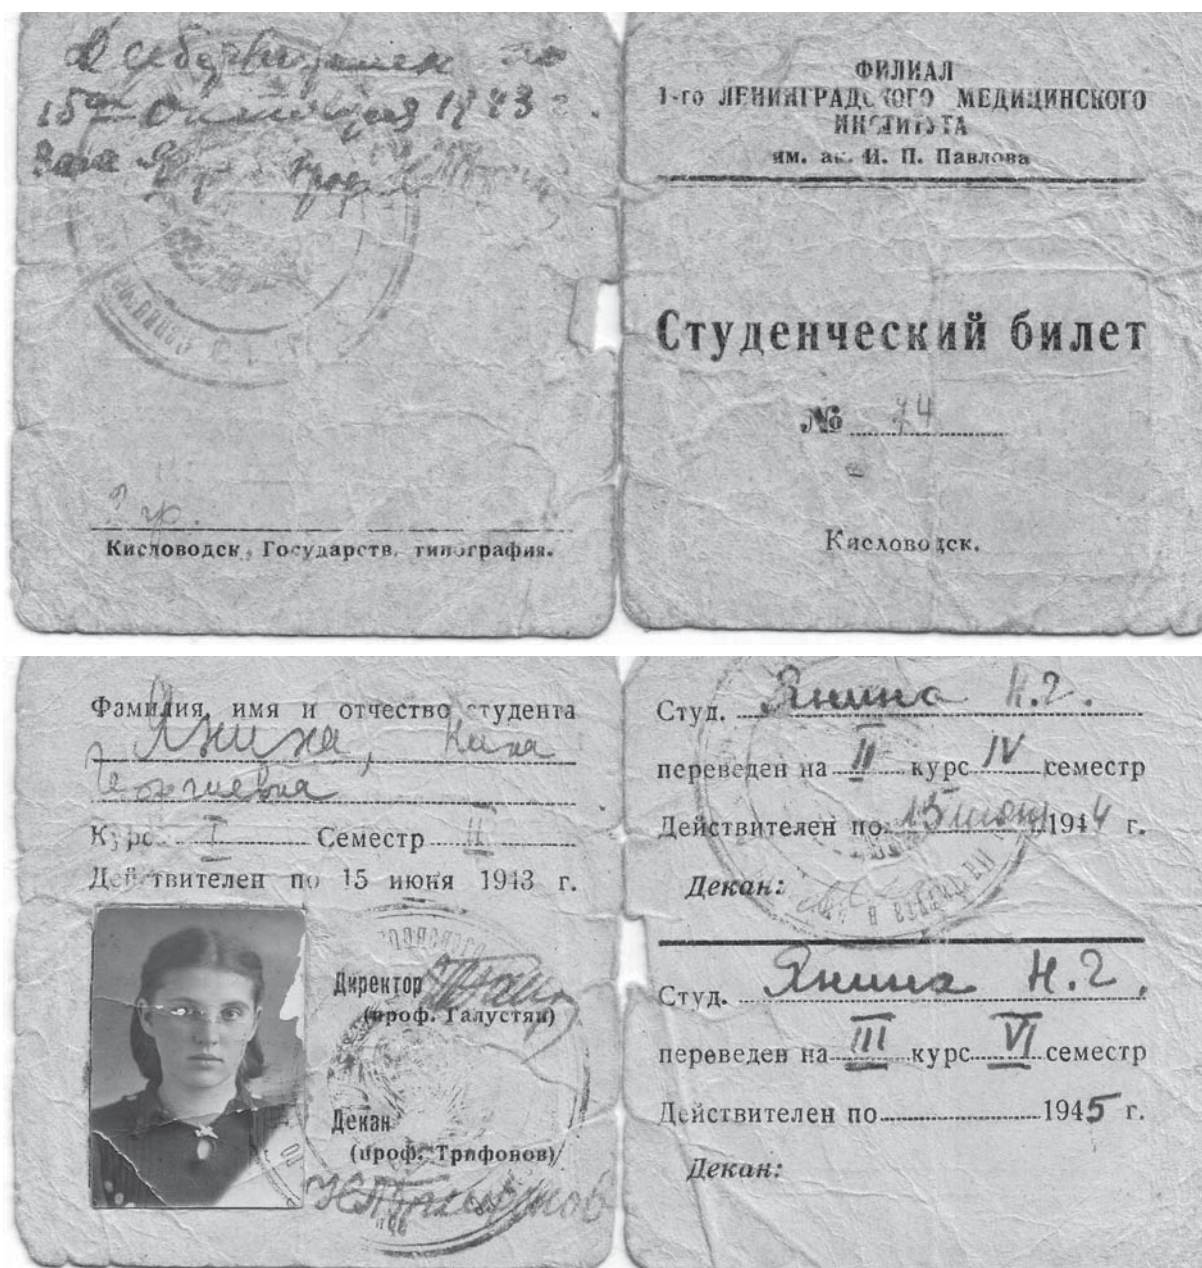 15го Октября 1943 г.
ФИЛИАЛ
1-го ЛЕНИНГРАДСКОГО МЕДИЦИНСКОГО
ИНСТИТУТА
им. ак. И. П. Павлова
Студенческий билет
№ 74
Кисловодск.
Кисловодск, Государств. типография.
Фамилия, имя и отчество студента
Янина, Нина
Георгиевна
Курс I Семестр II
Действителен по 15 июня 1943 г.
Директор
(проф. Галустян)
Декан
(проф. Трифонов)
Студ. Янина Н.Г.
переведен на II курс IV семестр
Действителен по 15 1944 г.
Декан:
Студ. Янина Н.Г.
переведен на III курс VI семестр
Действителен по 1945 г.
Декан: